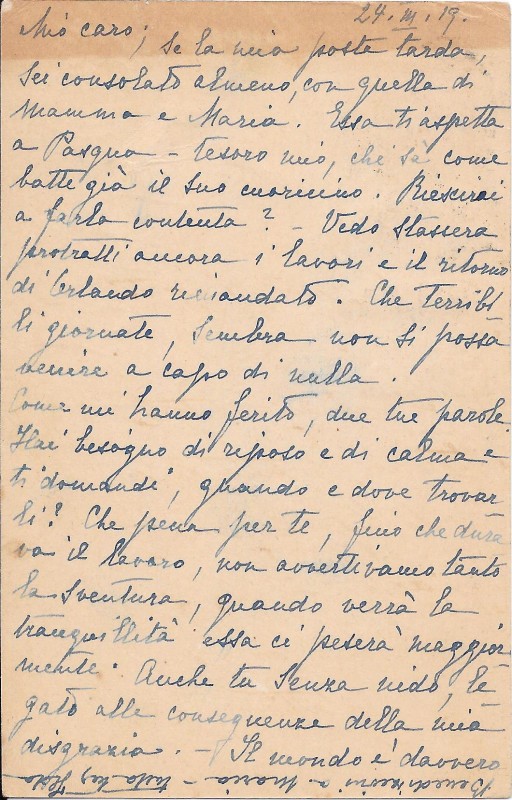 24. III. 19.
Mio caro; se la mia posta tarda,
sei consolato almeno, con quella di
Mamma e Maria. Essa ti aspetta
a Pasqua - tesoro mio, chi sa come
batte già il suo cuoricino. Riescirai
a farla contenta? - Vedo stassera
protratti ancora i lavori e il ritorno
di Orlando rimandato. Che terribi-
li giornate, sembra non si possa
venire a capo di nulla.
Come mi hanno ferito, due tue parole.
Hai besogno di riposo e di calma e
ti domandi, quando e dove trovar
li? Che pena per te, fino che dura
va il lavoro, non avvertivamo tanto
la sventura, quando verrà la
tranquillità essa ci peserà maggior
mente. Anche tu senza nido, le
gato alle conseguenze della mia
disgrazia. - Il mondo è davvero
Maria - tutta